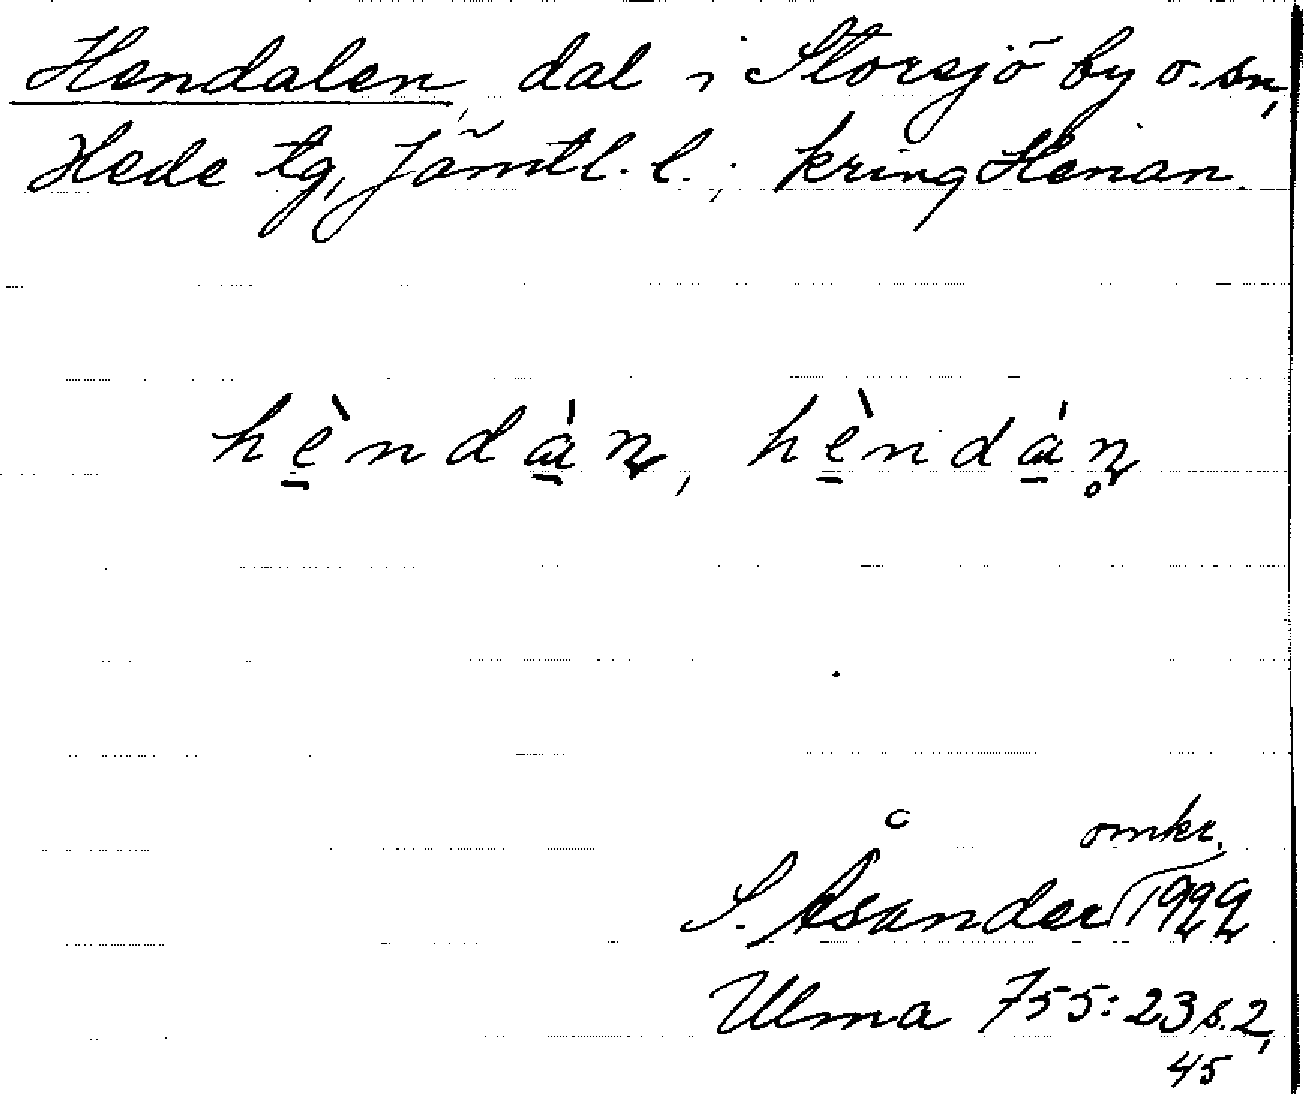 Hendalen, dal i Storsjö by o. sn,
Hede tg, Jämtl. l.; kring Henan.
hèndán, hèndán̥
omkr.
S. Åsander 1922
Ulma 755:23 s. 2,
45